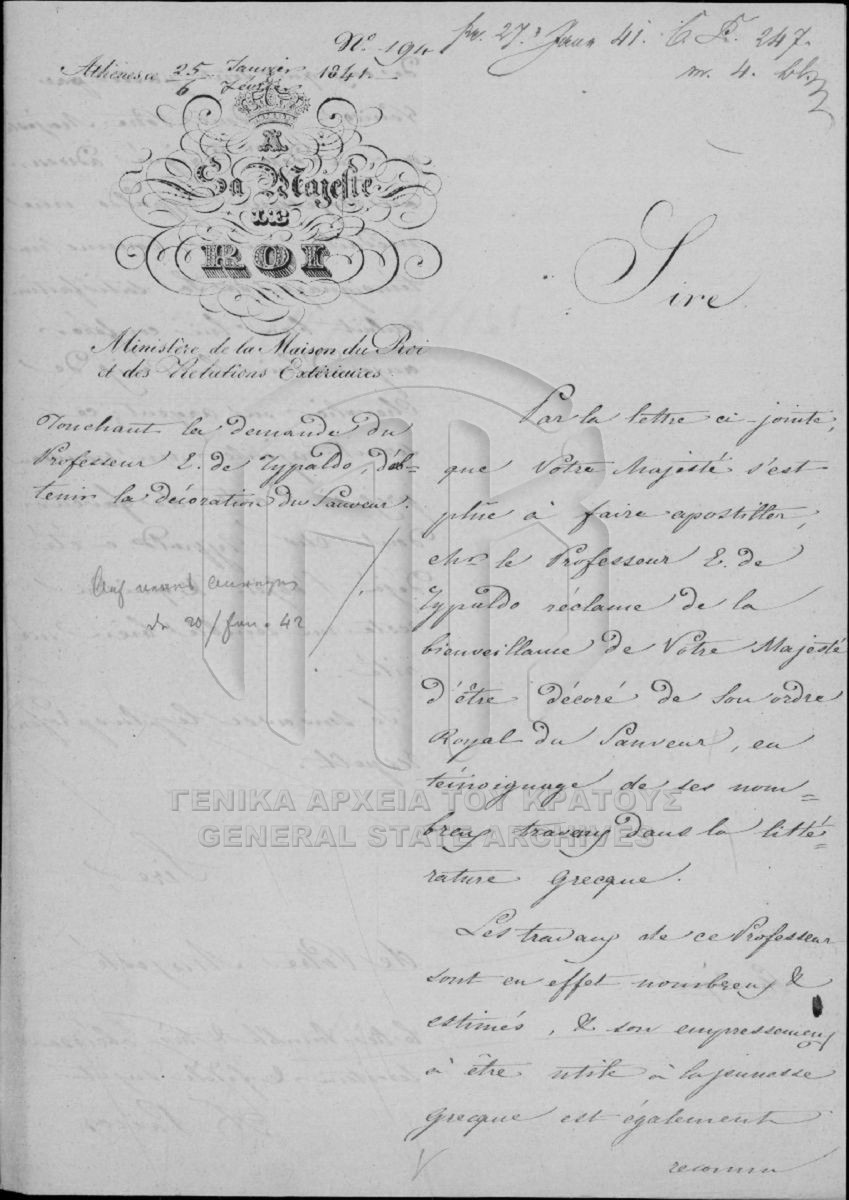 Nº 194
pr. 27. Janr 41. C. F. 247.
m. 4.
Athènes 25 Janvier 1841.
6 Février
A
Sa Majesté
LE
ROI
Sire
Ministère de la Maison du Roi
et des Relations Extérieures
Touchant la demande du
Professeur E. de Typaldo, d'ob=
tenir la décoration du Sauveur.
20/Jan. 42
Par la lettre ci-jointe,
que Votre Majesté s'est
plûe à faire apostiller,
le Professeur E. de
Typaldo réclame de la
bienveillance de Votre Majesté
d'être décoré de Son ordre
Royal du Sauveur, en
témoignage de ses nom=
breux travaux dans la litté=
rature grecque.
Les travaux de ce Professeur
sont en effet nombreux &
estimés, & son empressement
à être utile à la jeunesse
grecque est également
reconnu
ΓΕΝΙΚΑ ΑΡΧΕΙΑ ΤΟΥ ΚΡΑΤΟΥΣ
GENERAL STATE ARCHIVES